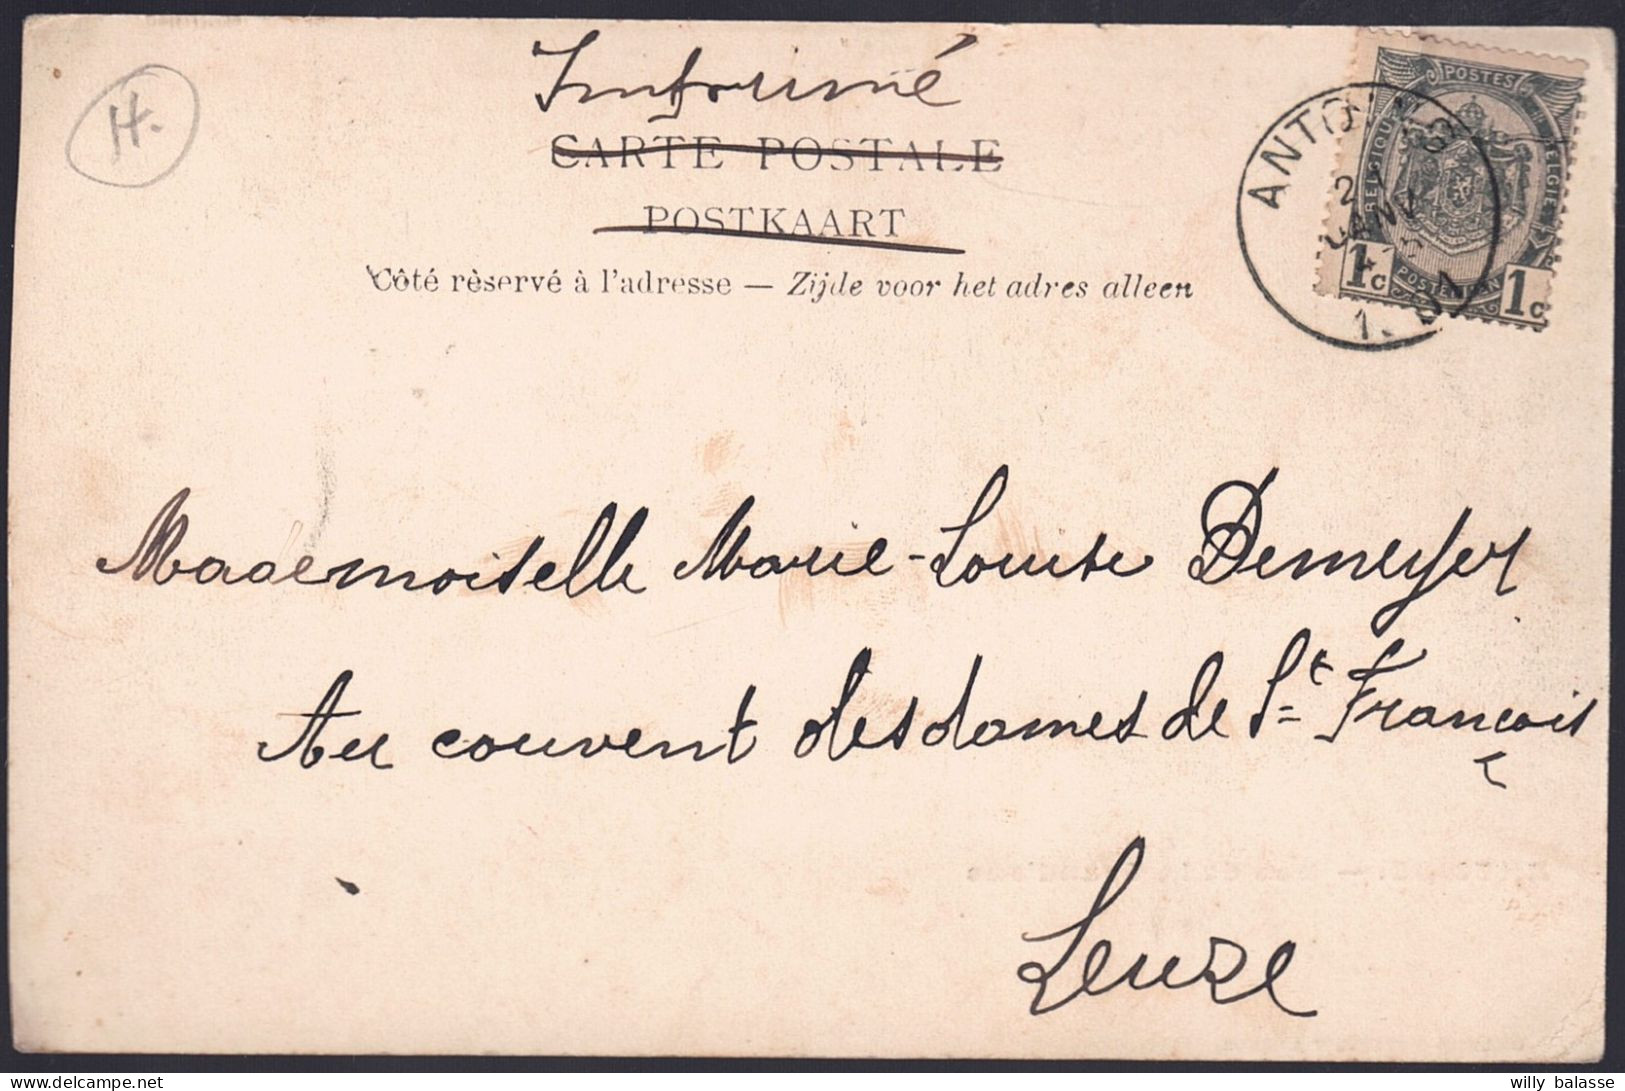 Imprimé
H.
CARTE POSTALE
POSTKAART
Côté rèservé à l'adresse — Zijde voor het adres alleen
POSTES
BELGIQUE
BELGIE
1c 1c
JANV
Mademoiselle Marie-Louise Demeyer
Au couvent des dames de St François
Leuze
willy balasse